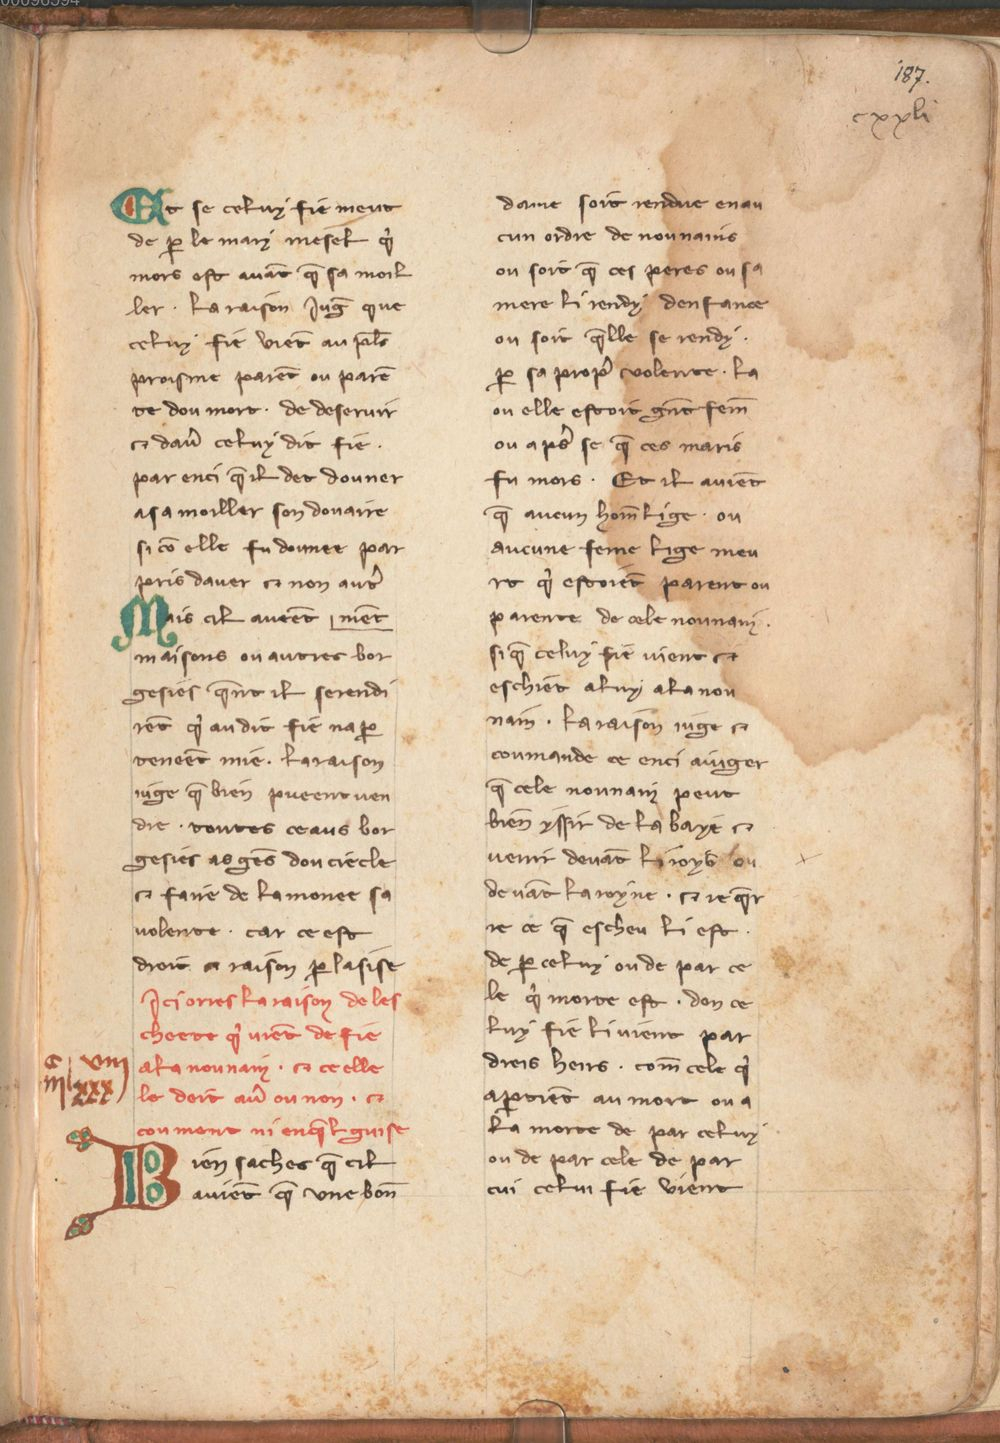 00096394
187.
cxxli
Et se celuy fie meut
de p̲ le mary mesel q̇
mors est auāt q̄ sa moil
ler · la raison Jug̅ que
celuy fie viēt au pl̅s
proisme parēt ou parē
te dou mort · de deseruir
⁊ dau̾ celuy dit fie ·
par enci q̄ il det douner
asa moiller son douaire
si cō elle fu dounee par
pris dauer ⁊ non aut̾
Mais cil aueēt | mēt
maisons ou autres bor
gesies q̄nt il serendi
rēt q̇ au dit fie na p̲
teneēt mie · la raison
iuge q̄ bien pueent uen
dre · toutes ceaus bor
gesies as gēs dou ciecle
⁊ faire de la monee sa
uolente · car ce est
dreit ⁊ raison p̲ lasise
Ici orres la raison de les
cheete q̇ uiēt de fie
ala nounain · ⁊ ce elle
le deit au̾ ou non · ⁊
coument ni en q̄l guise
c viii
iii xxx
Bien saches q̄ cil
auiēt q̄ vne bon̄
dame soit rendue enau
cun ordre de nounains
ou soit q̄ ces peres ou sa
mere li rendy denfance
ou soit q̄lle se rendy ·
p̲ sa prop̾ volente · la
ou elle estoit
ou ap̾s se q̄ ces maris
fu mors · Et il auiēt
q̄ aucun hom̄ lige · ou
aucune feme lige meu
rt q̇ estoiēt parent ou
parente de cele nounain ·
si q̄ celuy fie uient ⁊
eschiēt aluy ala nou
nain · la raison iuge ⁊
coumande ce enci aiuger
q̄ cele nounain peut
bien yssir de labaye ⁊
uenir deuāt li roys ou
deuāt la royne · ⁊ req̄r
re ce q̄ escheu li est ·
de p̲ celuy ou de par ce
le q̇ morte est · don ce
luy fie li uient par
dreis heirs · com̄ cele q̇
ap̲tiēt au mort ou a
la morte de par celuy
ou de par cele de par
cui celui fie vient